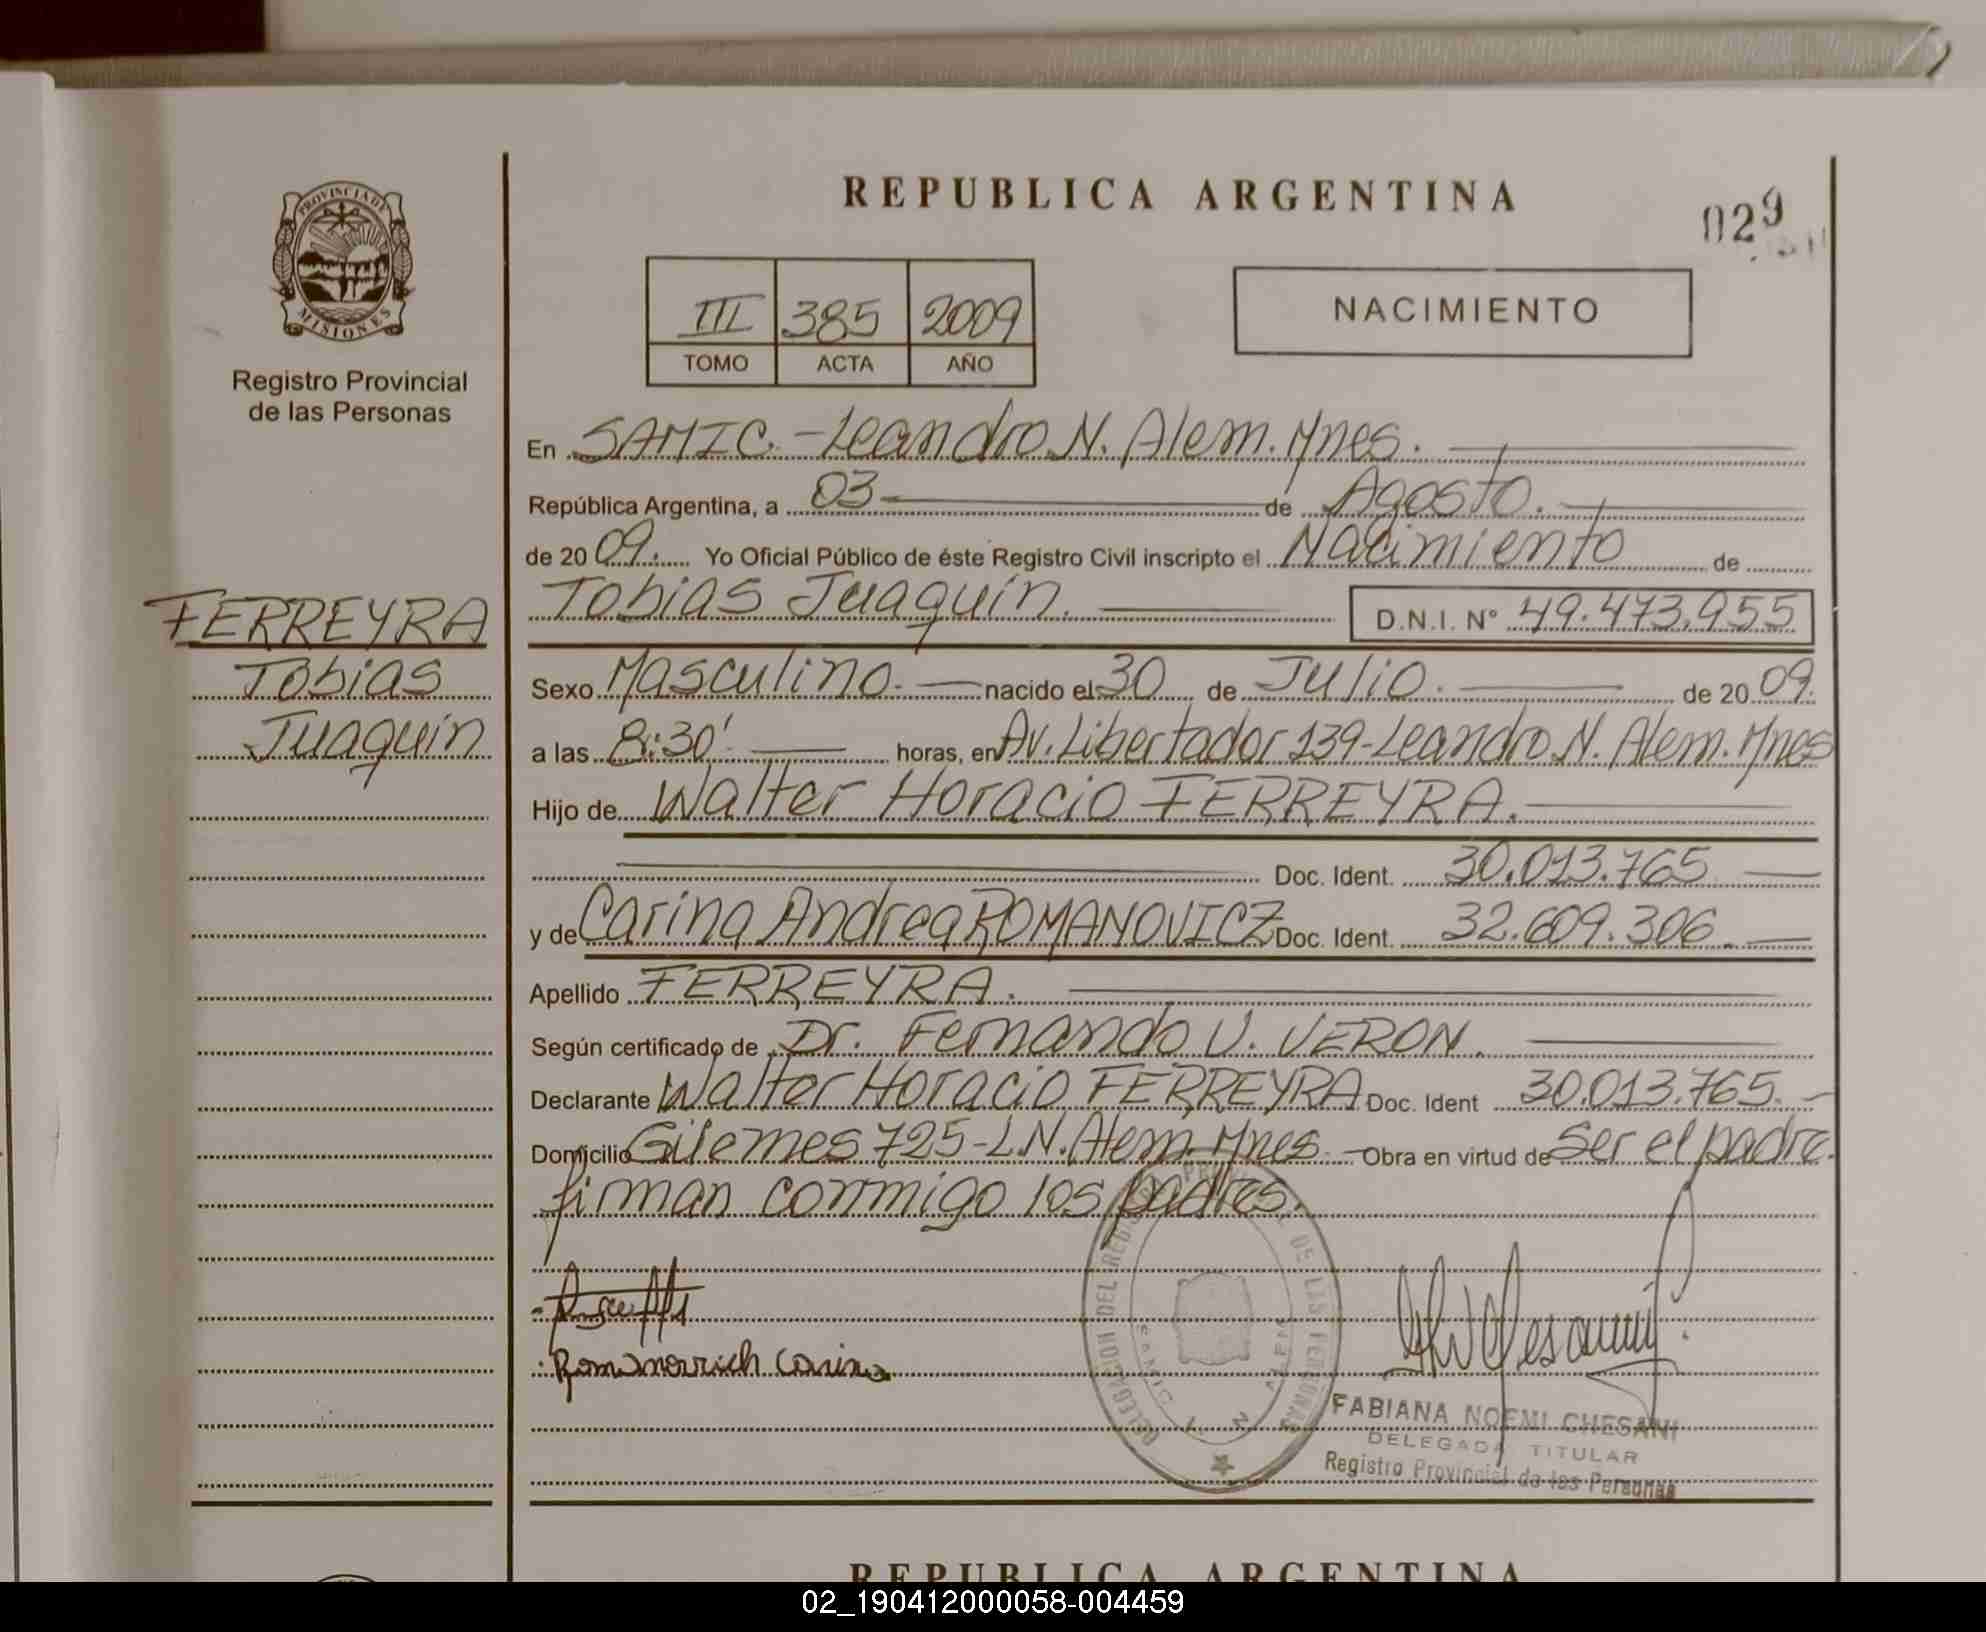 REPUBLICA ARGENTINA
029
PROVINCIA DE
MISIONES
Registro Provincial
de las Personas
III 385 2009
TOMO ACTA AÑO
NACIMIENTO
En SAMIC. - Leandro N. Alem. Mnes.
República Argentina, a 03 de Agosto.
de 20 09. Yo Oficial Público de éste Registro Civil inscripto el Nacimiento de
Tobias Juaquin. D.N.I. N° 49.473.955
FERREYRA
Tobias
Juaquin
Sexo Masculino. nacido el 30 de Julio. de 20 09.
a las 8:30' horas, en Av. Libertador 139-Leandro N. Alem. Mnes
Hijo de Walter Horacio FERREYRA.
Doc. Ident. 30.013.765
y de Carina Andrea ROMANOVICZ Doc. Ident. 32.609.306.
Apellido FERREYRA.
Según certificado de Dr. Fernando V. VERON.
Declarante Walter Horacio FERREYRA Doc. Ident 30.013.765.
Domicilio Güemes 725-L.N. Alem. Mnes. Obra en virtud de Ser el padre.
firman conmigo los padres.
Romanovich Carina
DELEGACION DEL REGISTRO PROVINCIAL DE LAS PERSONAS
SAMIC L. N. ALEM
FABIANA NOEMI CHESANI
DELEGADA TITULAR
Registro Provincial de las Personas
REPUBLICA ARGENTINA
02_190412000058-004459